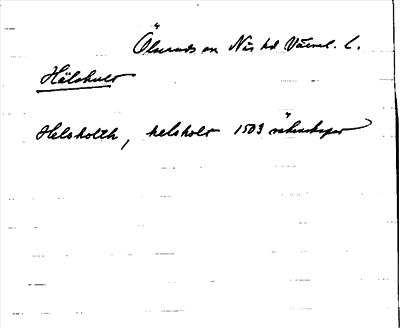 Ölseruds sn Näs hd Värml. l.
Hälsholt
Helsholth, helsholt 1503 räkenskaper